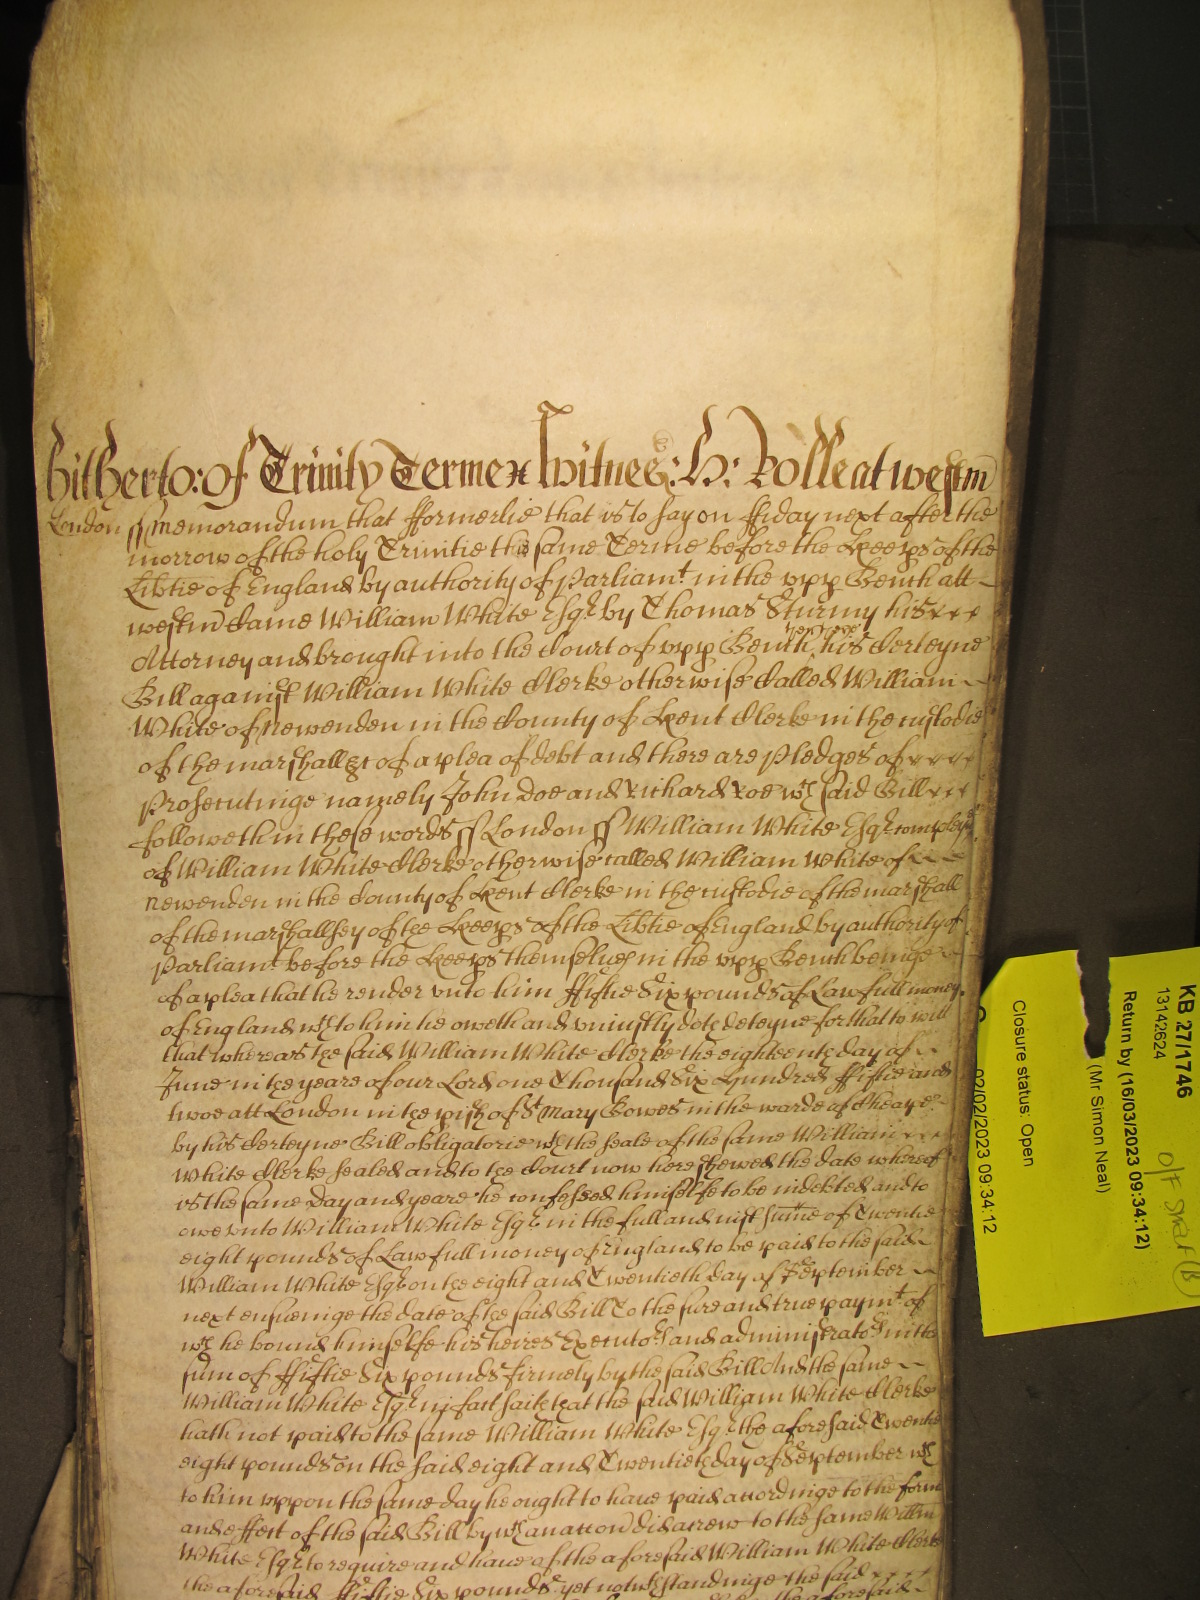 hitherto: of Trinity Terme Witnes: H: Rolle at Westm
London ss Memorandum that fformerlie that is to say on ffriday next after the
morrow of the holy Trinitie this same Terme before the Keeps of the
Libtie of England by authority of Parliamt in the upp Bench att
Westm Came William White Esqr by Thomas Sturmy his
Attorney and brought into the Court of upp Bench then there his Certeyne
Bill against William White Clerke otherwise Called William
White of Newenden in the County of Kent Clerke in the custodie
of the marshall &c of a plea of debt and there are Pledges of
Prosecutinge namely John Doe and Richard Roe wch said Bill
followeth in these words ss London ss William White Esqr compleynes
of William White Clerke otherwise called William White of
Newenden in the County of Kent Clerke in the custodie of the marshall
of the marshallsey of the Keeps of the Libtie of England by authority of
Parliamt before the Keeps themselves in the upp Bench beinge
of a plea that he render unto him ffiftie Six pounds of Lawfull money
of England wch to him he oweth and uniustly doth deteyne for that to witt
that whereas the said William White Clerke the eighteenth day of
June in the yeare of our Lord one Thousand Six Hundred ffiftie and
twoe att London in the pish of St Mary Bowes in the warde of Cheape
by his Certeyne Bill obligatorie wth the seale of the same William
White Clerke sealed and to the Court now here shewed the date whereof
is the same Day and yeare he confessed himselfe to be indebted and to
owe unto William White Esqr in the full and iust sume of Twentie
eight pounds of Lawfull money of England to be paid to the said
William White Esqr on the eight and Twentieth day of September
next ensueinge the date of the said Bill To the sure and true paymt of
wch he bound himselfe his heires Executors and administrators in the
sum of ffiftie Six pounds firmely by the said Bill And the same
William White Esqr in fact saith that the said William White Clerke
hath not paid to the same William White Esqr the aforesaid Twentie
eight pounds on the said eight and Twentieth day of September wch
to him uppon the same day he ought to have paid accordinge to the forme
and effect of the said Bill by wch an accon did accrew to the same Willm
White Esqr to require and have of the aforesaid William White Clerke
the aforesaid ffiftie Six pounds yet notwthstandinge the said
the aforesaid
KB 27/1746
13142624
Return by (16/03/2023 09:34:12)
(Mr Simon Neal)
Closure status: Open
02/02/2023 09:34:12